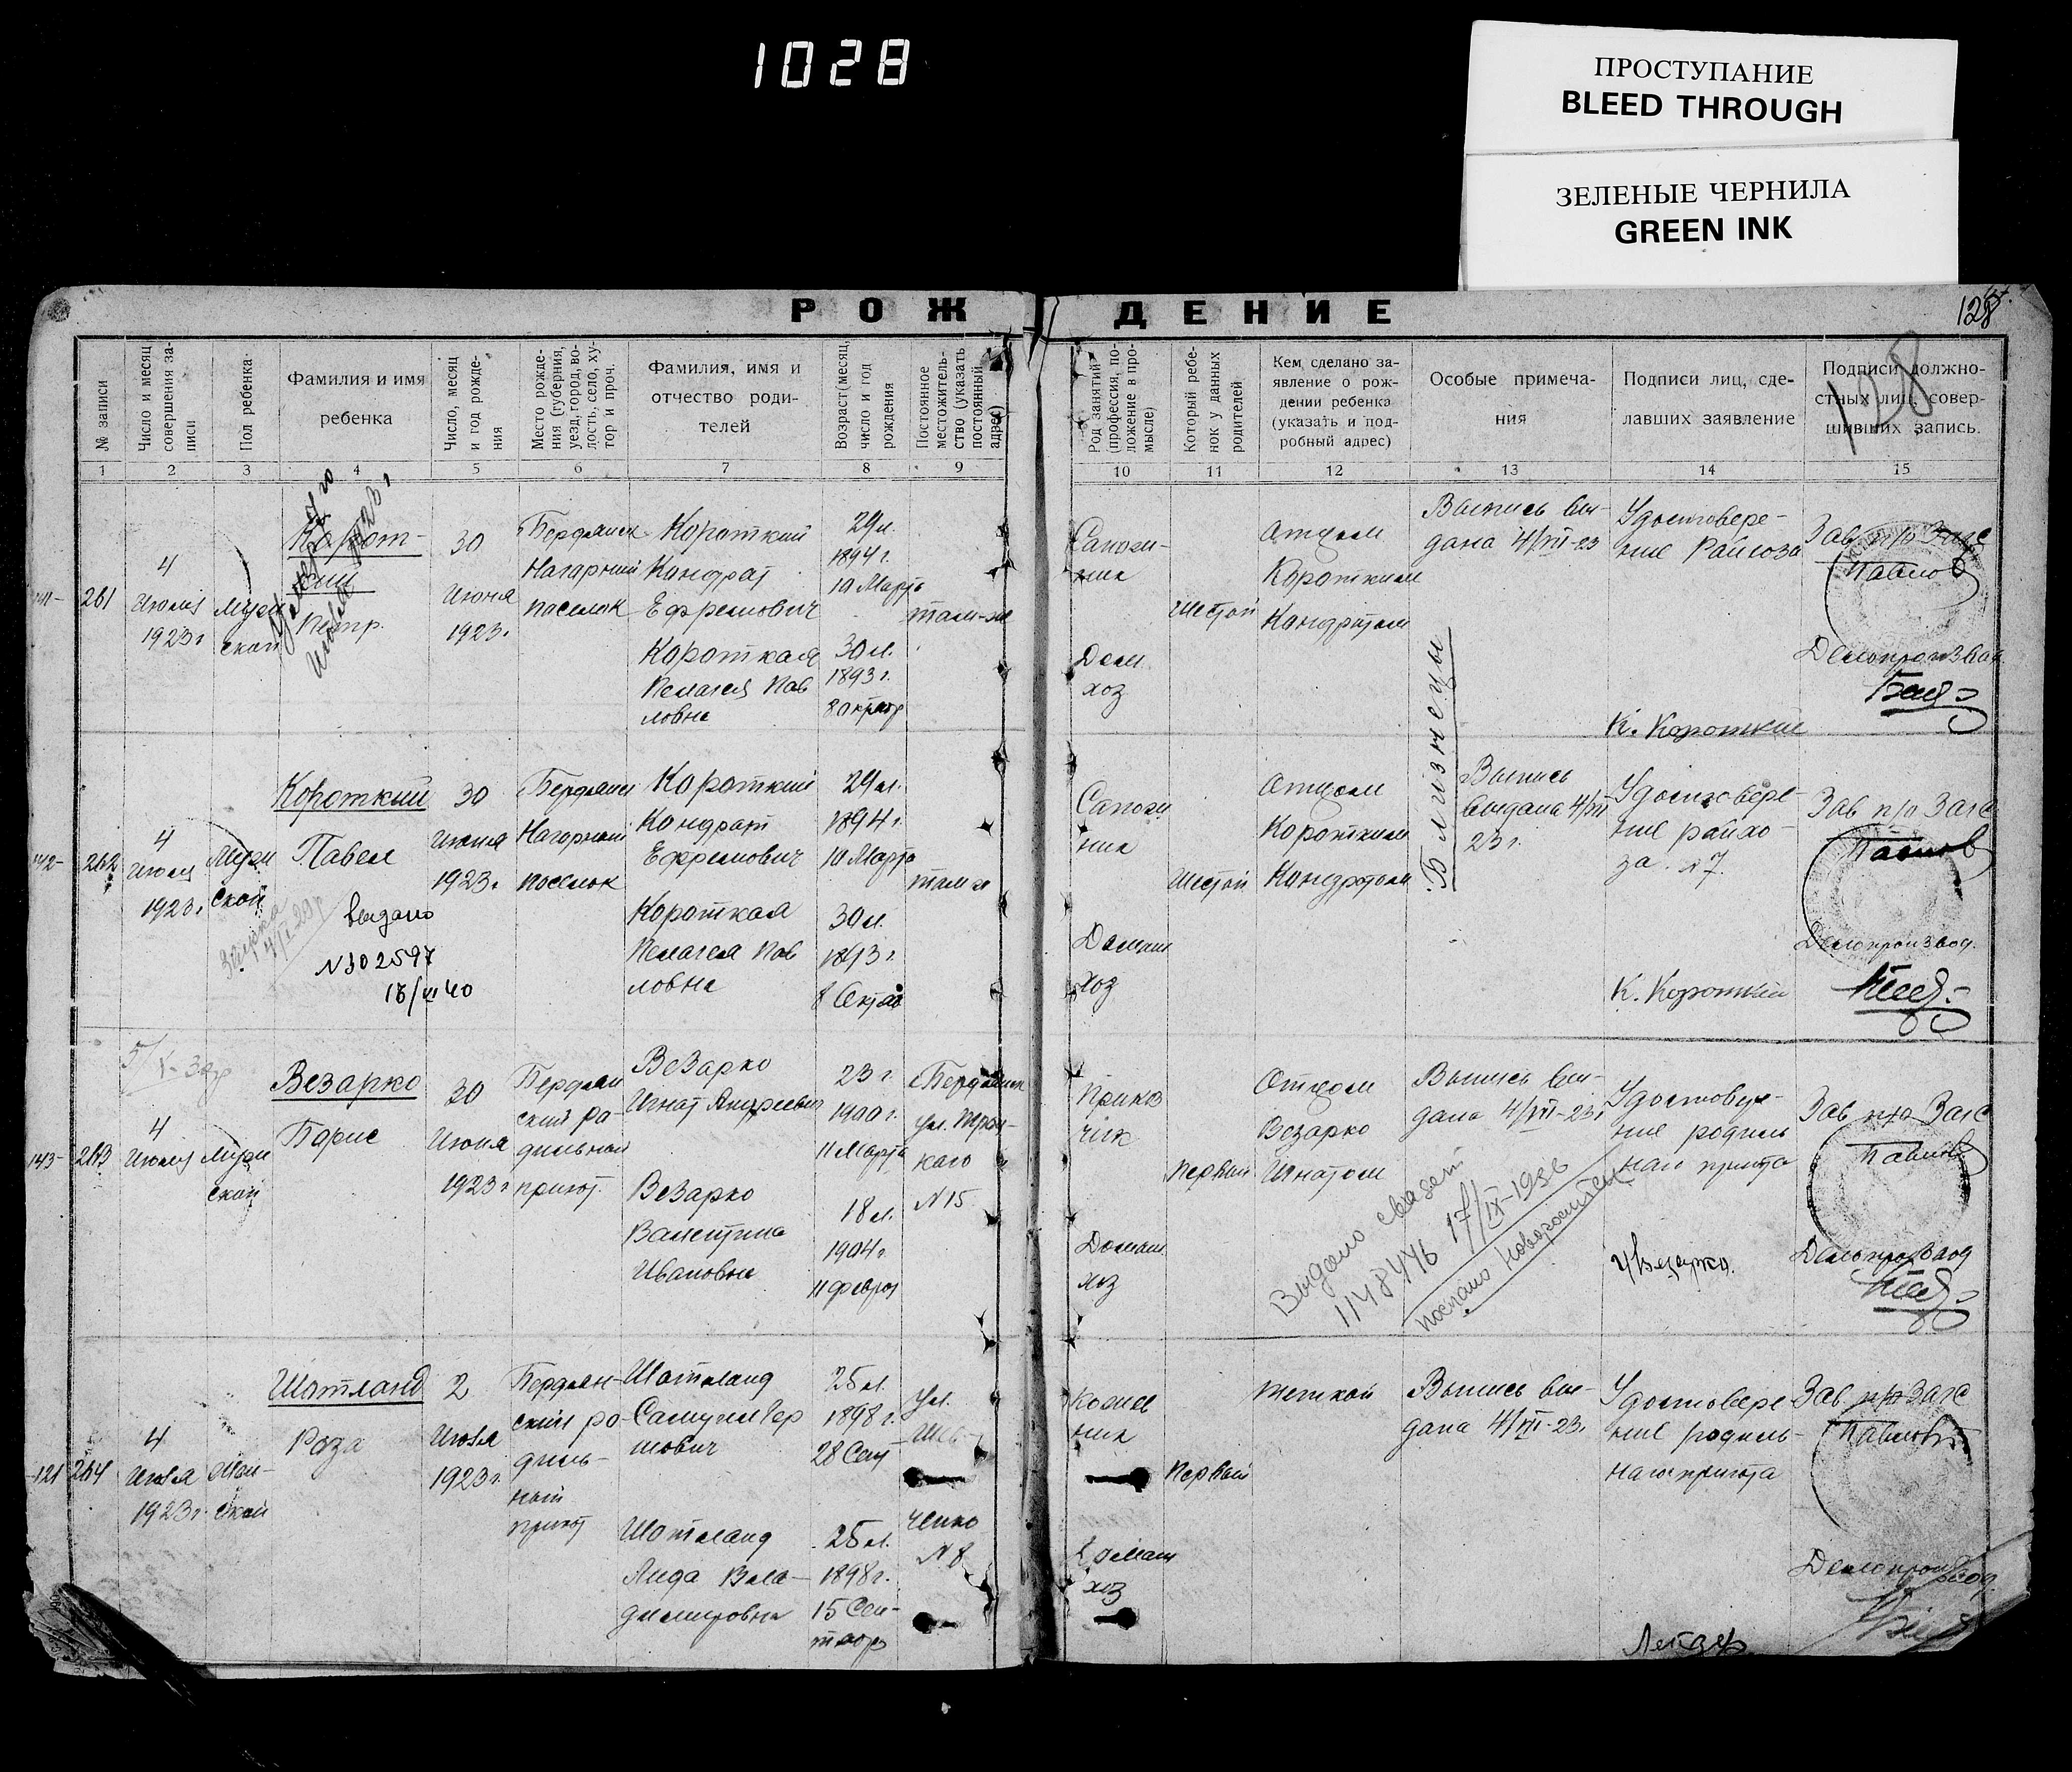 1028
ПРОСТУПАНИЕ
BLEED THROUGH
ЗЕЛЕНЫЕ ЧЕРНИЛА
GREEN INK
РОЖДЕНИЕ
128
128
№ записи
Число и месяц
совершения за-
писи
Пол ребенка
Фамилия и имя
ребенка
Число, месяц
и год рожде-
ния
Место рожде-
ния (губерния,
уезд, город, во-
лость, село, ху-
тор и проч.
Фамилия, имя и
отчество роди-
телей
Возраст, месяц,
число и год
рождения
Постоянное
местожитель-
ство (указать
постоянный
адрес)
Род занятий
(профессия, по-
ложение в про-
мысле)
Который ребе-
нок у данных
родителей
Кем сделано за-
явление о рож-
дении ребенка
(указать и под-
робный адрес)
Особые примеча-
ния
Подписи лиц, сде-
лавших заявление
Подписи должно-
стных лиц, совер-
шивших запись.
1 2 3 4 5 6 7 8 9 10 11 12 13 14 15
261
4
Июля
1923 г
Муж
ской
Корот-
кий
Петр.
Умер
30
Июня
1923 г
Бердянск
Нагорный
поселок
Короткий
Кондрат
Ефремович
Короткая
Пелагея Пав
ловна
29 л.
1894 г.
10 Марта
30 л.
1893 г.
8 октяб
там-же
Сапож-
ник
Дом.
хоз
Шестой
Отцом
Коротким
Кондратом
Выпись вы-
дана 4/VII-23
Близнецы
Удостовере-
ние Райхоза
К. Короткий
Зав п/о Загс
Павлов
Делопроизвод
142-
262
4
Июля
1923 г
Муж
ской
Короткий
Павел
выдано
№302597
18/VI 40
30
Июня
1923 г
Бердянск
Нагорный
поселок
Короткий
Кондрат
Ефремович
Короткая
Пелагея Пав
ловна
29 л.
1894 г.
10 Марта
30 л.
1893 г.
8 Октяб
там ж
Сапож
ник
Домаш
хоз
Шестой
Отцом
Коротким
Кондратом
Выпись
выдана 4/VII
23 г.
Удостовере-
ние райхо-
за. №7.
К. Короткий
Зав п/о Загс
Павлов
Делопроизвод.
143-
263
4
Июля
1923 г
Муж
ской
Везарко
Борис
30
Июня
1923 г
Бердян
ский ро-
дильный
приют.
Везарко
Игнат Андреевич
Везарко
Валентина
Ивановна
23 г.
1900 г.
11 Марта
18 л.
1904 г.
11 феврал
Бердянск
ул. Троц-
каго
N 15
Приказ
чик
Домаш.
хоз
первый
Отцом
Везарко
Игнатом
Выпись вы-
дана 4/VII-23 г
Выдано
1148446 17/IX-1936
послано
Удостовере-
ние родиль
наго приюта
И Везарко.
Зав п/о Загс
Павлов
Делопроизвод
121
264
4
Июля
1923 г.
Жен-
ской
Шотланд
Роза
2
Июля
1923 г.
Бердян-
ский ро-
диль-
ный
приют
Шотланд
Самуил Гер
шович
Шотланд
Лида Вла-
димировна
25 л.
1898 г.
28 Сент
25 л.
1898 г.
15 Сен-
тябр
ул.
Шев-
ченко
N 8
Кожев
ник
Домаш
хоз
первый
теткой
Выпись вы-
дана 4/VII-23.
Удостовере
ние родиль-
наго приюта
Зав п/о Загс
Павлов
Делопроизвод.